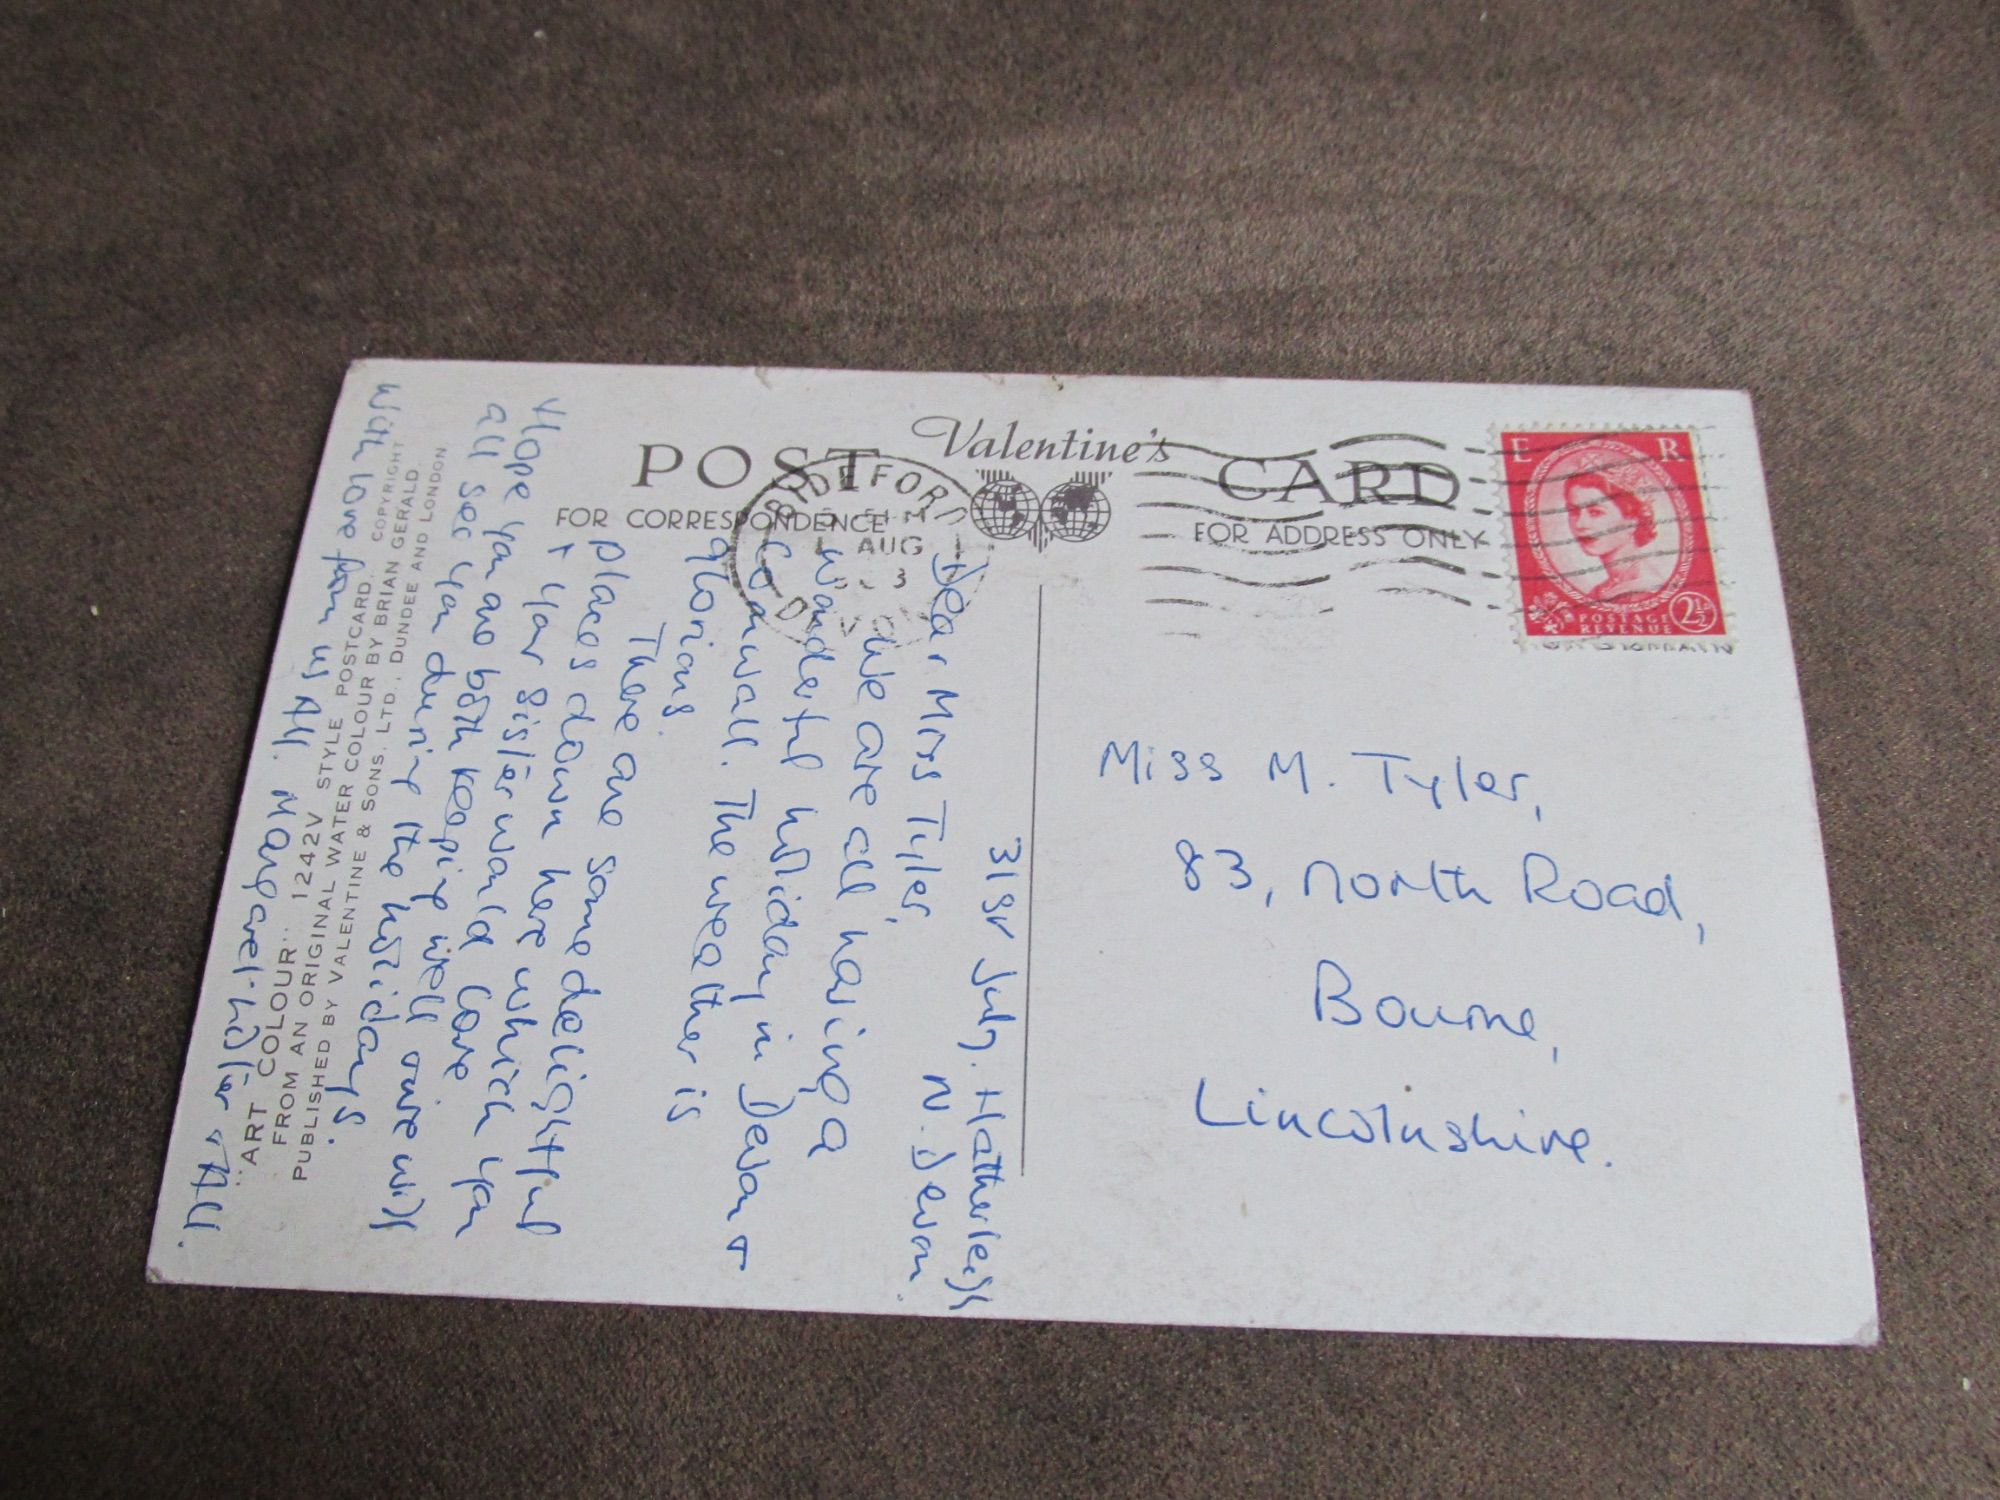 POST Valentine's CARD
FOR CORRESPONDENCE
FOR ADDRESS ONLY
BIDEFORD
AUG
DEVON
E R
POSTAGE
REVENUE
2½
Miss M. Tyler,
83, North Road,
Bourne,
Lincolnshire.
31st July. Hatherleigh
N. Devon.
Dear Miss Tyler,
We are all having a
wonderful holiday in Devon +
Cornwall. The weather is
glorious.
There are some delightful
places down here which you
+ your sister would love
Hope you are both keeping well
all see you during the holidays.
With love from us All. Margaret
"ART COLOUR" 1242V STYLE POSTCARD.
FROM AN ORIGINAL WATER COLOUR BY BRIAN GERALD
COPYRIGHT
PUBLISHED BY VALENTINE & SONS, LTD., DUNDEE AND LONDON